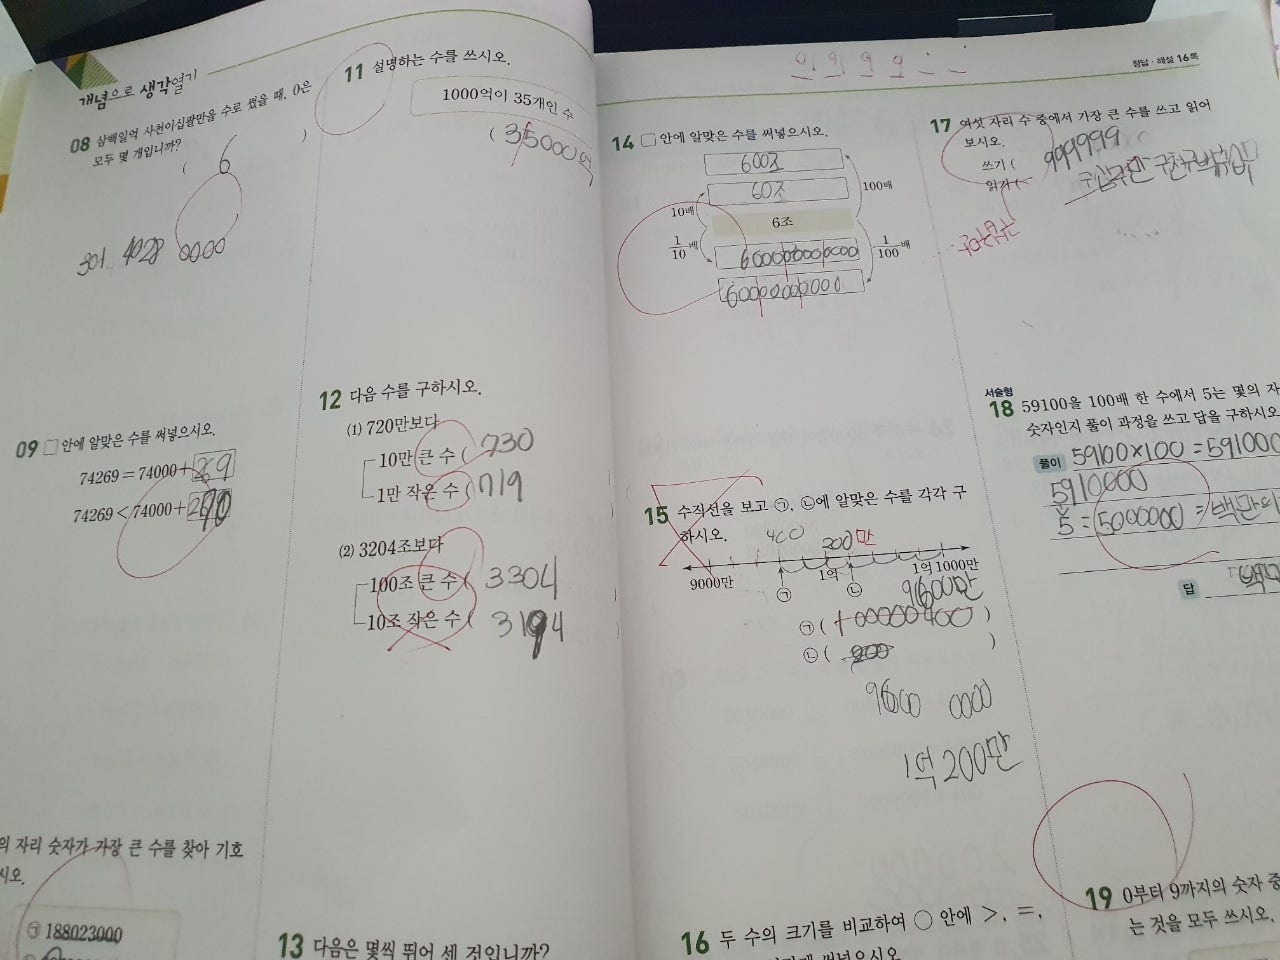 개념으로 생각열기
08 삼백일억 사천이십팔만을 수로 썼을 때, 0은
모두 몇 개입니까?
( 6 )
301 4028 0000
09 □ 안에 알맞은 수를 써넣으시오.
74269 = 74000 + 269
74269 < 74000 + 270
의 자리 숫자가 가장 큰 수를 찾아 기호
시오.
㉠ 188023000
11 설명하는 수를 쓰시오.
1000억이 35개인 수
( 35000억 )
12 다음 수를 구하시오.
(1) 720만보다
10만 큰 수 ( 730
1만 작은 수 ( 719
(2) 3204조보다
100조 큰 수 ( 3304
10조 작은 수 ( 3194
13 다음은 몇씩 뛰어 센 것입니까?
정답·해설 16쪽
14 □ 안에 알맞은 수를 써넣으시오.
600조
60조
100배
10배
6조
1/10배
1/100배
600000000000
60000000000
15 수직선을 보고 ㉠, ㉡에 알맞은 수를 각각 구
하시오.
400
200만
9000만
1억
1억 1000만
㉠
㉡
9600만
㉠ (
)
㉡ (
)
9600 0000
1억 200만
16 두 수의 크기를 비교하여 ○ 안에 >, =,
17 여섯 자리 수 중에서 가장 큰 수를 쓰고 읽어
보시오.
쓰기 ( 999999
읽기 ( 구십구만 구천구백구십
서술형
18 59100을 100배 한 수에서 5는 몇의 자
숫자인지 풀이 과정을 쓰고 답을 구하시오
풀이 59100×100=591000
5910000
5=5000000=백만의
답
19 0부터 9까지의 숫자 중
는 것을 모두 쓰시오.